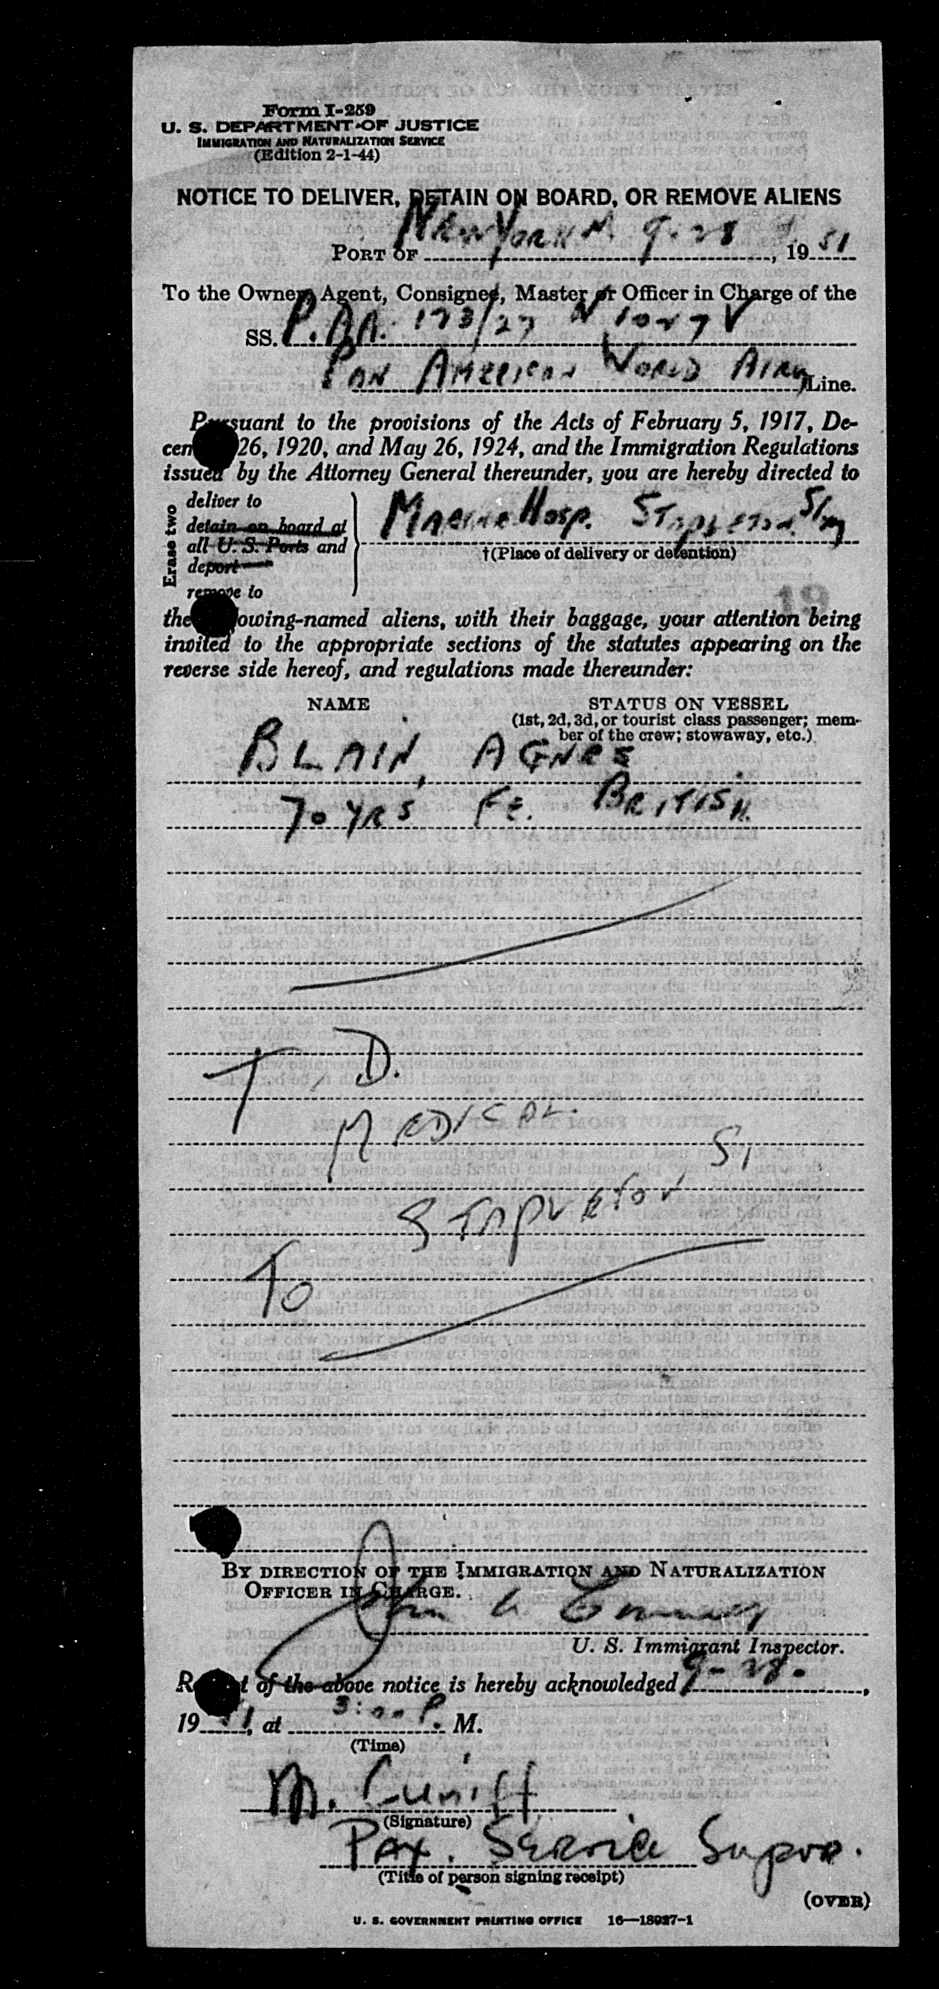 Form I-259
U. S. DEPARTMENT OF JUSTICE
IMMIGRATION AND NATURALIZATION SERVICE
(Edition 2-1-44)
NOTICE TO DELIVER, DETAIN ON BOARD, OR REMOVE ALIENS
PORT OF NEW YORK 9-28, 1951
To the Owner, Agent, Consignee, Master or Officer in Charge of the
SS. P.AA. 173/27 N 1027V
PAN AMERICAN WORLD AIRW Line.
Pursuant to the provisions of the Acts of February 5, 1917, De-
cem 26, 1920, and May 26, 1924, and the Immigration Regulations
issued by the Attorney General thereunder, you are hereby directed to
Erase two
deliver to
detain on board at
all U. S. Ports and
deport
remove to
MARINE Hosp. STAPLETON
†(Place of delivery or detention)
19
the owing-named aliens, with their baggage, your attention being
invited to the appropriate sections of the statutes appearing on the
reverse side hereof, and regulations made thereunder:
NAME STATUS ON VESSEL
(1st, 2d, 3d, or tourist class passenger; mem-
ber of the crew; stowaway, etc.)
BLAIN, AGNES
70 YRS FE. BRITISH
T. D.
MEDICAL.
STAPLETON SI
TO
BY DIRECTION OF THE IMMIGRATION AND NATURALIZATION
OFFICER IN CHARGE.
John
U. S. Immigrant Inspector.
R t of the above notice is hereby acknowledged 9-28.,
1951, at 3:00 P. M.
(Time)
M. Cuniff
(Signature)
PAX. SERVICE Supvr.
(Title of person signing receipt)
(OVER)
U. S. GOVERNMENT PRINTING OFFICE 16—18927-1